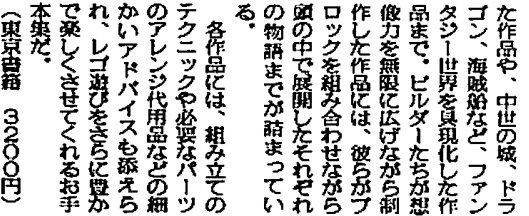 た作品や、中世の城、ドラ
ゴン、海賊船など、ファン
タジー世界を具現化した作
品まで。ビルダーたちが想
像力を無限に広げながら制
作した作品には、彼らがブ
ロックを組み合わせながら
頭の中で展開したそれぞれ
の物語までが詰まってい
る。
各作品には、組み立ての
テクニックや必要なパーツ
のアレンジ代用品などの細
かいアドバイスも添えら
れ、レゴ遊びをさらに豊か
で楽しくさせてくれるお手
本集だ。
（東京書籍　3200円）